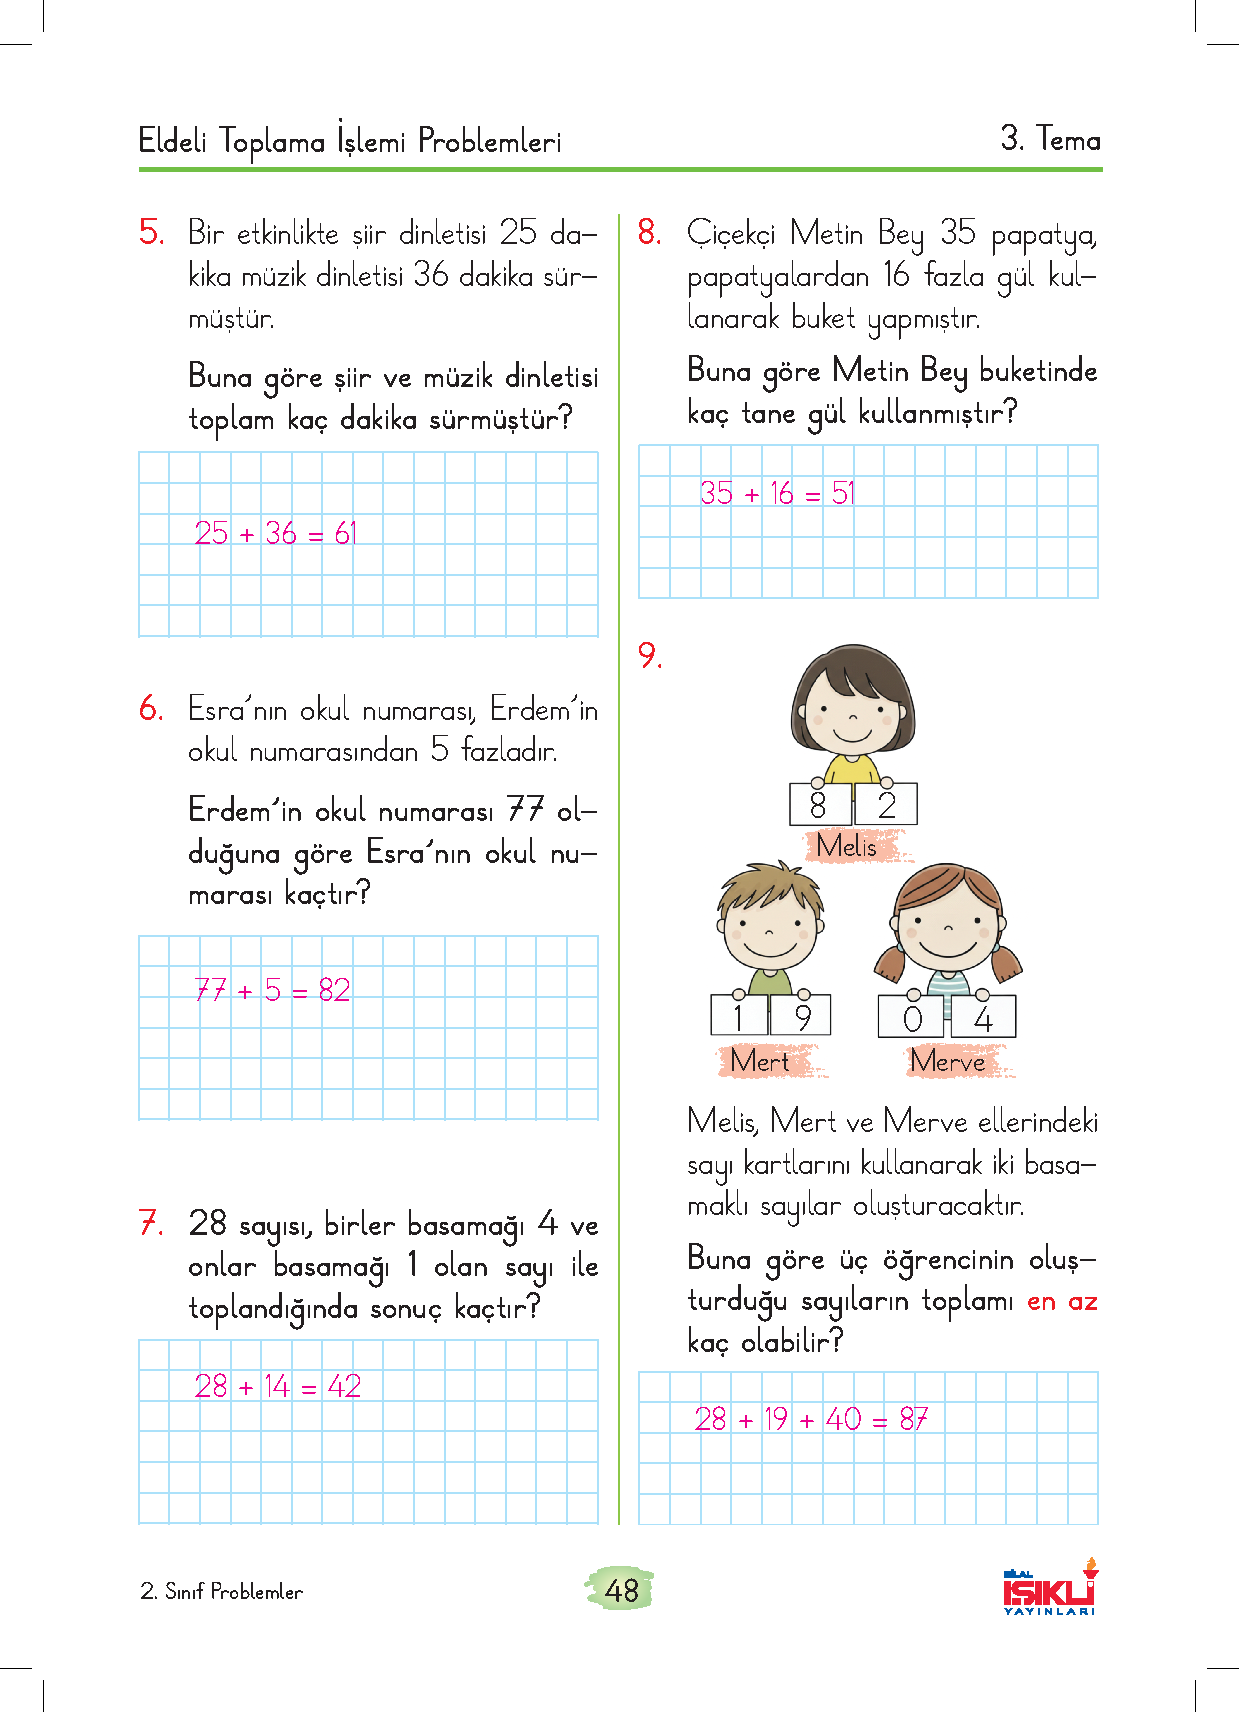 Eldeli Toplama İşlemi Problemleri
3. Tema
5. Bir etkinlikte şiir dinletisi 25 da-
kika müzik dinletisi 36 dakika sür-
müştür.
Buna göre şiir ve müzik dinletisi
toplam kaç dakika sürmüştür?
25 + 36 = 61
6. Esra'nın okul numarası, Erdem'in
okul numarasından 5 fazladır.
Erdem'in okul numarası 77 ol-
duğuna göre Esra'nın okul nu-
marası kaçtır?
77 + 5 = 82
7. 28 sayısı, birler basamağı 4 ve
onlar basamağı 1 olan sayı ile
toplandığında sonuç kaçtır?
28 + 14 = 42
8. Çiçekçi Metin Bey 35 papatya,
papatyalardan 16 fazla gül kul-
lanarak buket yapmıştır.
Buna göre Metin Bey buketinde
kaç tane gül kullanmıştır?
35 + 16 = 51
9.
8 2
Melis
1 9 0 4
Mert Merve
Melis, Mert ve Merve ellerindeki
sayı kartlarını kullanarak iki basa-
maklı sayılar oluşturacaktır.
Buna göre üç öğrencinin oluş-
turduğu sayıların toplamı en az
kaç olabilir?
28 + 19 + 40 = 87
2. Sınıf Problemler
48
BİLAL
IŞIKLI
YAYINLARI